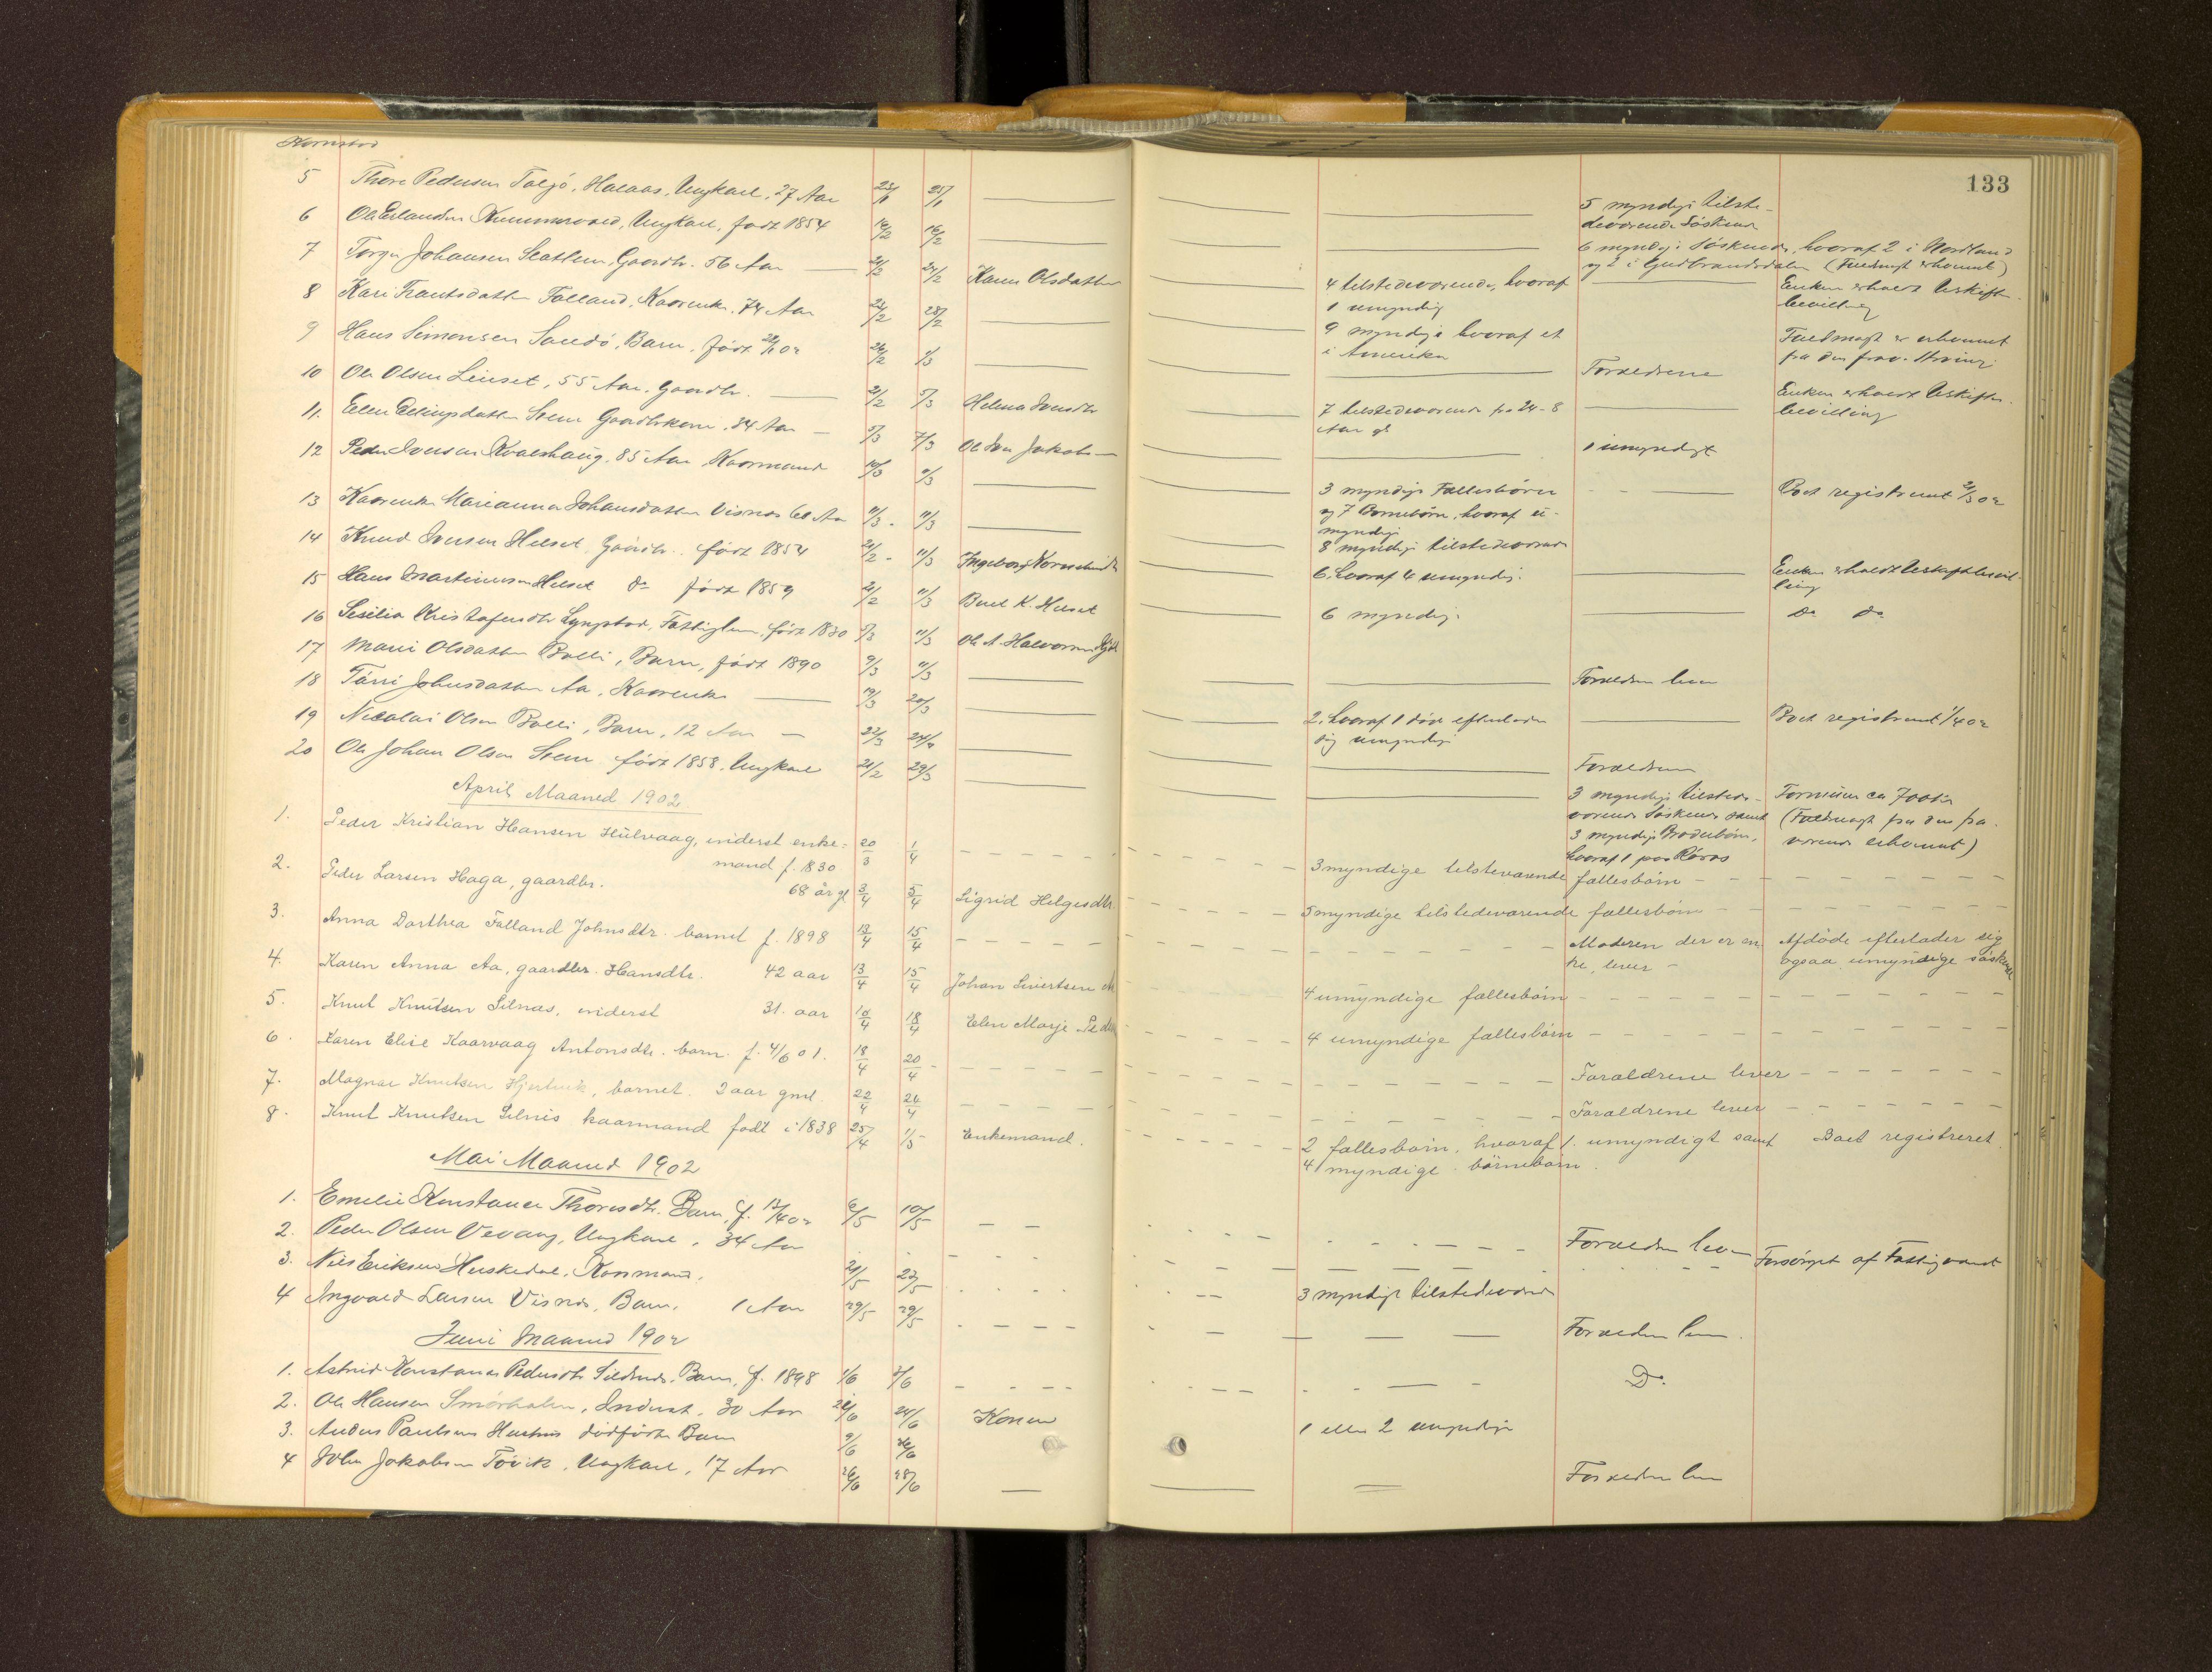 Kornstad
133
5 Thore Pedersen Taljö, Halaas, Ungkarl, 27 Aar 23/1 25/1 5 myndige tilste-
deværende Söskende
6 Ole Erlandsen Kummervold, Ungkarl, født 1854 14/2 16/2 6 myndige Söskende, hvoraf 2 i Nordland
og 2 i Gudbrandsdalen (Fuldmagt erhvervet)
7 Torger Johansen Slatlem, Gaardbr. 56 Aar 21/2 24/2 Karen Olsdatter 4 tilstedeværende, hvoraf
1 umyndig
Enken erholdt Uskifte-
bevilling
8 Kari Frantsdatter Folland, Kaarenke, 74 Aar 24/2 28/2 9 myndige hvoraf et
i Amerika
Fuldmagt er erhvervet
fra den
9 Hans Simonsen Sandö, Barn, født 02 26/2 1/3 Forældrene
10 Ole Olsen Linset, 55 Aar, Gaardbr. 21/2 5/3 Helena 7 tilstedeværende fra 24-8
Aar gl
Enken erholdt Uskifte-
bevilling
11. Ellen Ellingsdatter Stene Gaardbrkone, 34 Aar 5/3 7/3 Ole Jakob 1 umyndigt
12 Peder Iversen Kvalshaug, 85 Aar, Kaarmand 10/3 3 myndige Fællesbörn
og 7 Børnebörn, hvoraf ei
myndige
Boet registreret 21/3 02
13 Kaarenke Marianna Johansdatter Visnes 60 Aar 11/3 11/3 8 myndige tilstedeværende
14 Knud Iversen Helset, Gaardbr. født 1854 21/2 11/3 Ingeborg 6, hvoraf 4 umyndig. Enken erholdt Uskiftebevil-
ling
15 Hans Martinusen Helset Do født 1859 21/2 11/3 Beret K. Helset 6 myndige Do Do
16 Sesilia Kristofersdtr Lyngstad, Fattiglem, født 1830 5/3 11/3 Ole A. Halvorsen
17 Marie Olsdatter Bolli, Barn, født 1890 9/3 11/3 Forældrene lever
18 Tárri Johnsdatter Aa, Kaarenke 19/3 20/3 2, hvoraf 1 död efterlader
sig umyndige
Boet registreret 1/4 02
19 Nicolai Olsen Bolli, Barn, 12 Aar 22/3 24/3 Forældrene
20 Ole Johan Olsen Stene født 1858, Ungkarl 21/2 29/3 3 myndige tilstede-
værende Söskende samt
3 myndige Broderbörn,
hvoraf 1 paa Röros
Formuen ca 700 kr
(Fuldmagt fra den fra-
værende erhvervet)
April Maaned 1902
1. Peder Kristian Hansen Hulvaag, inderst enke-
mand f. 1830 20/3 1/4 3 myndige tilsteværende fællesbörn
2. Peder Larsen Haga, gaardbr. 68 år gl 3/4 5/4 Sigrid Helgesdtr. 5 myndige tilstedeværende fællesbörn
3. Anna Dorthea Folland Johnsdtr. barnet f. 1898 13/4 15/4 Moderen der er en-
ke, lever
Afdöde efterlader sig
ogsaa umyndige söskende
4. Karen Anna Aa, gaardbr. Hansdtr. 42 aar 13/4 15/4 Johan Sivertsen Aa 4 umyndige fællesbörn
5. Knut Knutsen Silnes, inderst 31. aar 10/4 18/4 Elen Marje 4 umyndige fællesbörn
6. Karen Elise Kaarvaag Antonsdtr. barn. f. 4/6 01. 18/4 20/4 Forældrene lever
7. Magnar Knutsen Hjertvik, barnet. 2 aar gml 22/4 26/4 Forældrene lever
8. Knut Knutsen Silnes kaarmand født i 1838 25/4 1/5 Enkemand. 2 fællesbörn, hvoraf 1. umyndigt samt
4 myndige börnebörn.
Boet registreret
Mai Maaned 1902
1. Emelie Konstance Thoresdtr. Barn, f. 12/4 02 6/5 10/5 Forældrene lever
2. Peder Olsen Vevang, Ungkarl, 34 Aar Forsörget af Fattigvæsnet
3. Nils Eriksen Huskedal, Kaarmand, 21/5 23/5 3 myndige tilstedeværende
4 Ingvald Larsen Visnes, Barn, 1 Aar 29/5 29/5 Forældrene lever.
Juni Maaned 1902
1. Astrid Konstance Pedersdtr Sildnes, Barn, f. 1898 1/6 3/6 Do
2. Ole Hansen Smörholm, Inderst, 30 Aar 24/6 Konen 1 eller 2 umyndige
3. Anders Paulsens dødfödte Barn 9/6
4 John Jakobsen Tövik, Ungkarl, 17 Aar 26/6 28/6 Forældrene lever